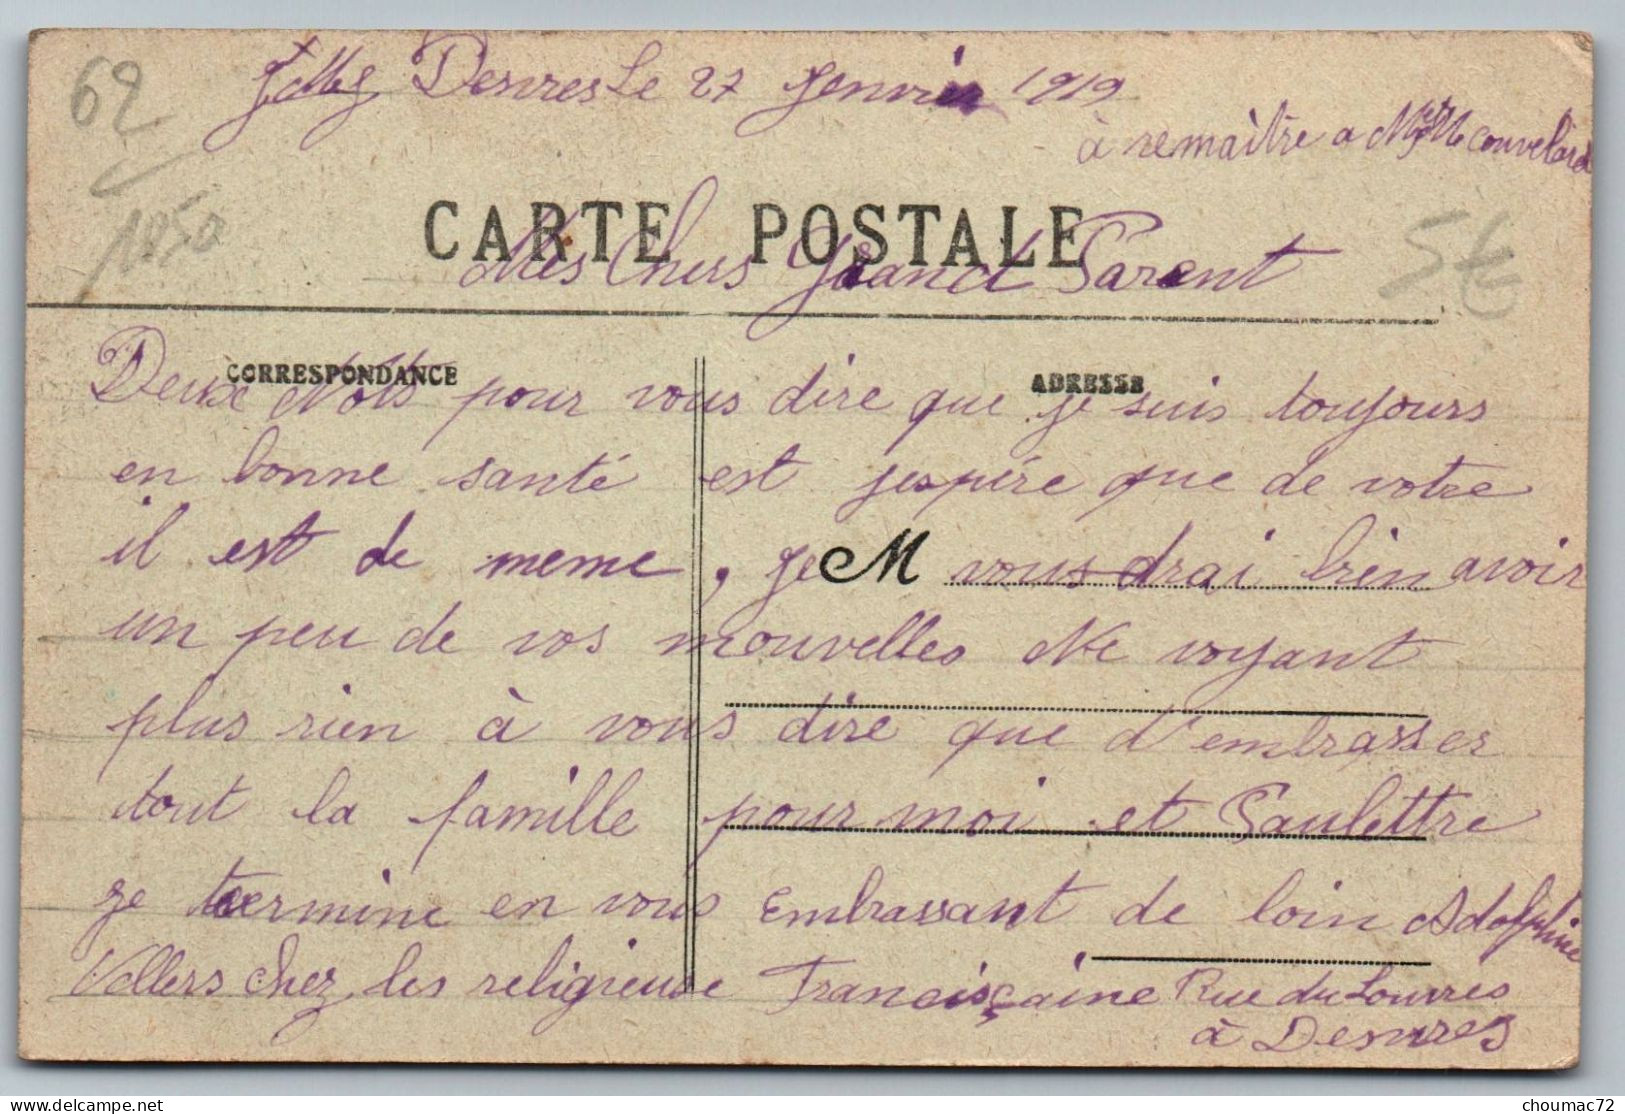 62
Desvres Le 27 Janvier 1919
à remaître a Mr Mme Couvelard
1050
CARTE POSTALE
5€
Mes Chers Grand Parent
CORRESPONDANCE
ADRESSE
Deux Mots pour vous dire que je suis toujours
en bonne santé est jespére que de votre
il est de meme, Je vousdrai bien avoir
M
un peu de vos nouvelles Ne voyant
plus rien à vous dire que d'embrasser
tout la famille pour moi et Paulettre
je termine en vous Embrassant de loin Adolphine
Vollers Chez les religieuse Franciscaine Rue du Louvres
à Desvres
choumac72